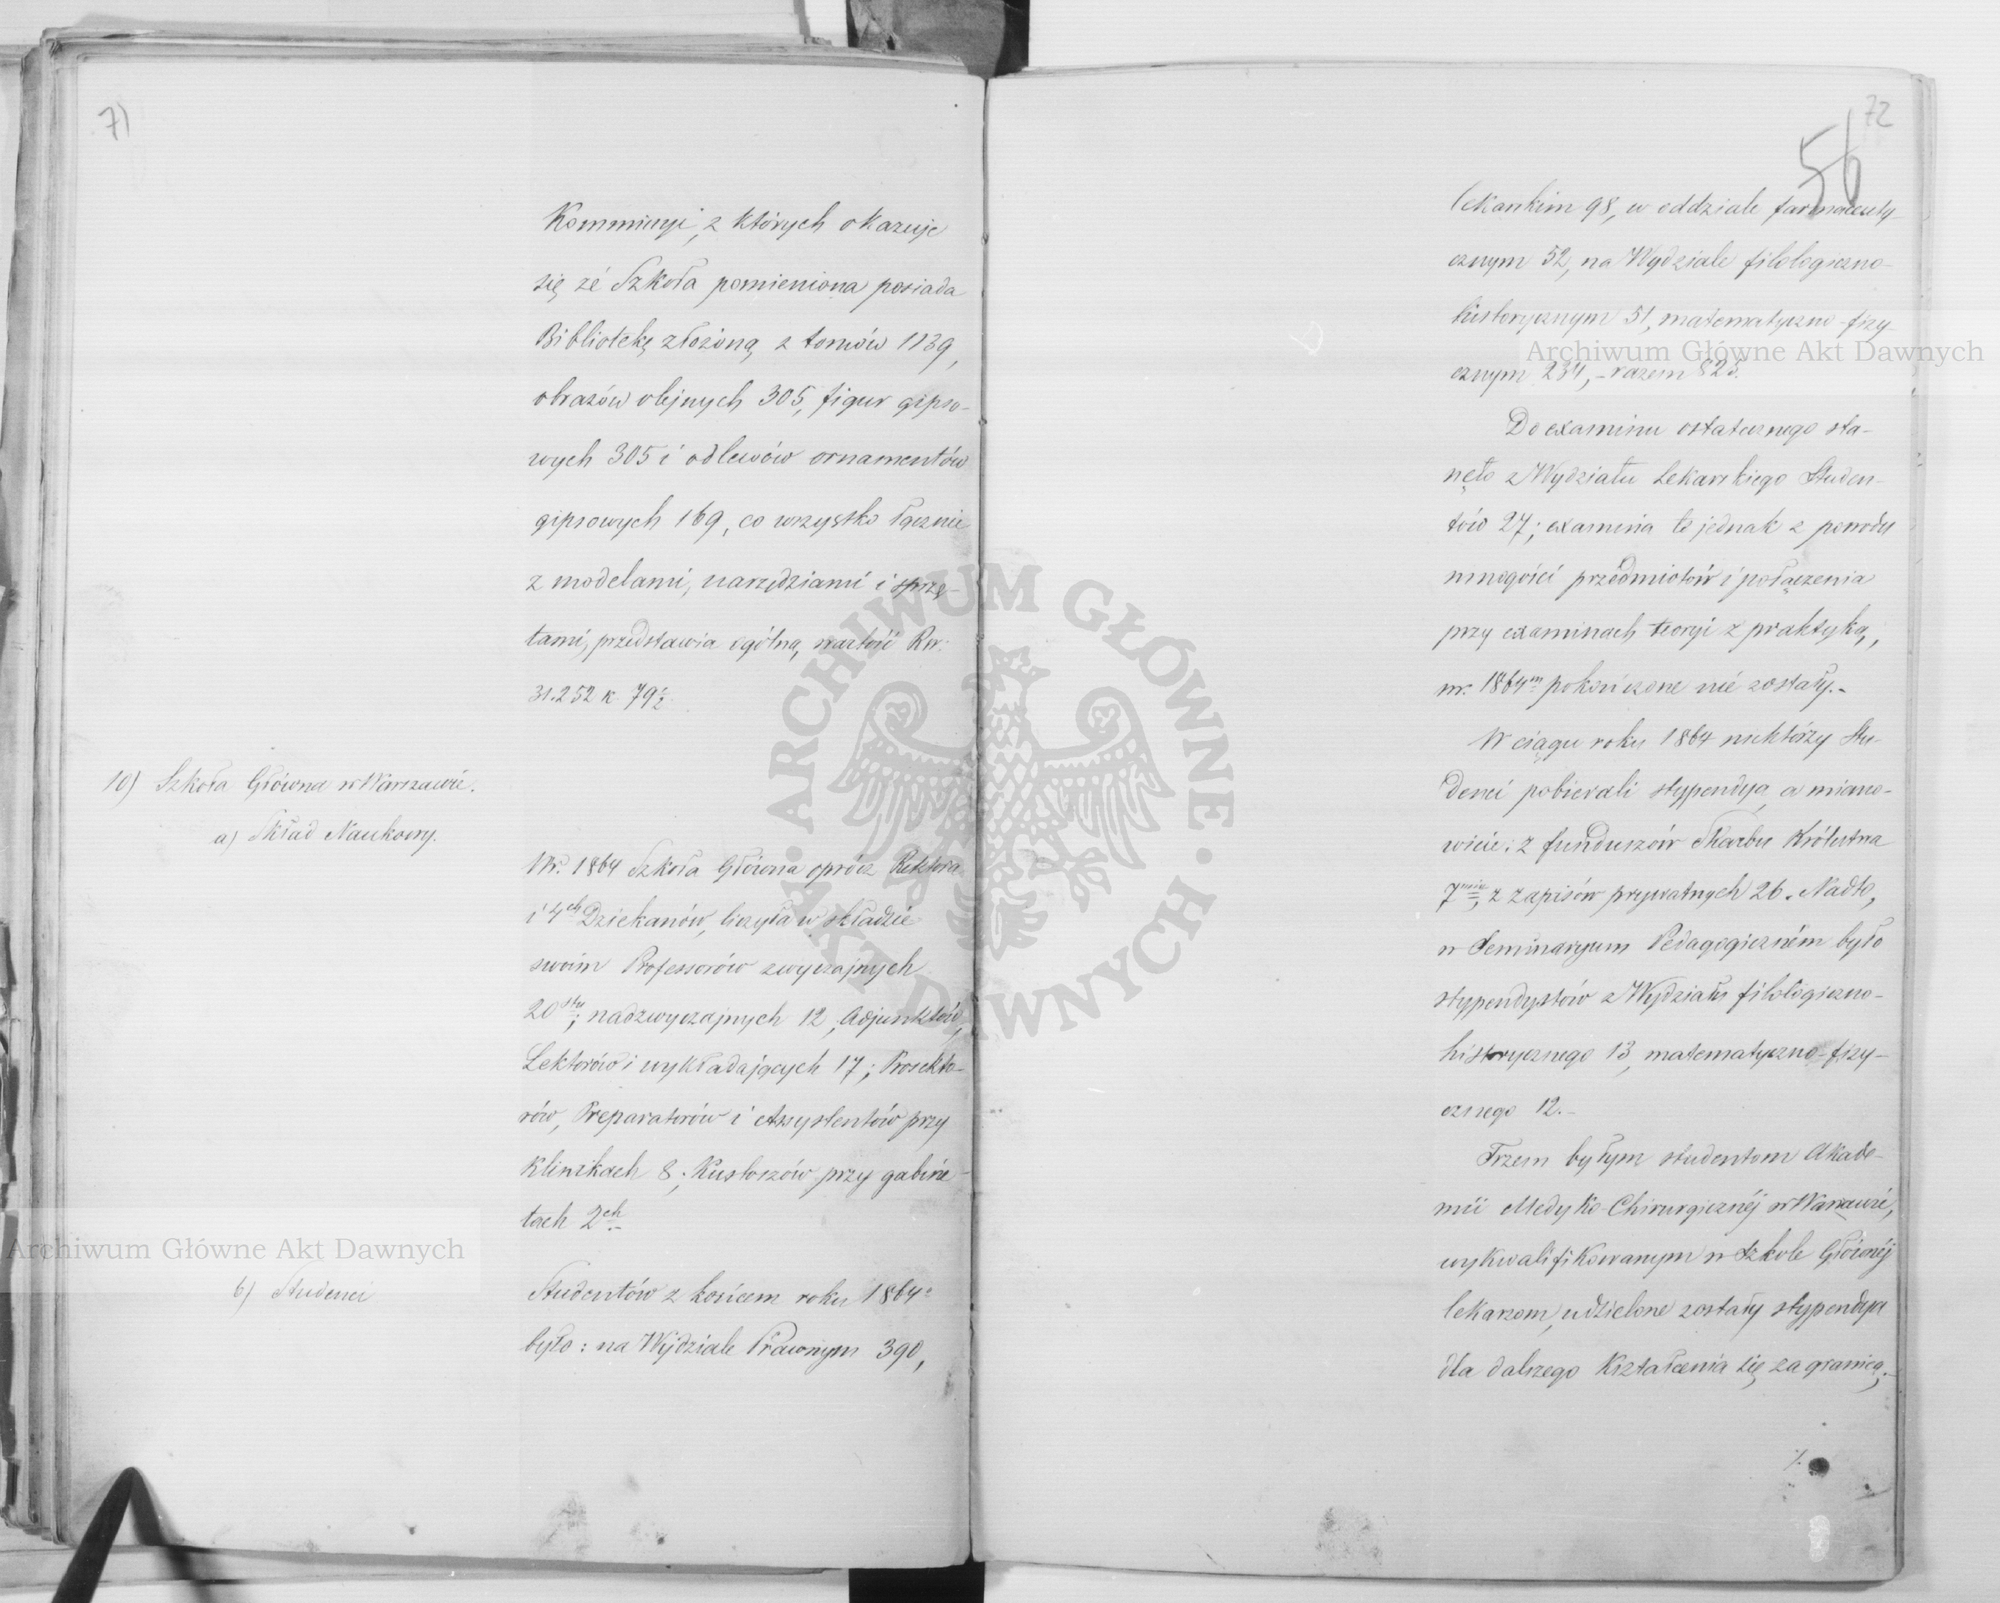 71)
Kommissyi, z których okazuje
się że Szkoła pomieniona posiada
Bibliotekę złożoną z tomów 1139,
obrazów olejnych 305, figur gipso-
wych 305 i odlewów ornamentów
gipsowych 169, co wszystko łącznie
z modelami, narzędziami i sprzę-
tami, przedstawia ogólną wartość Rsr:
31.252 k. 79½
10) Szkoła Główna w Warszawie.
a) Skład Naukowy.
W r. 1864 Szkoła Główna oprócz Rektora
i 4ch Dziekanów, liczyła w składzie
swoim Professorów zwyczajnych
20stu; nadzwyczajnych 12; Adjunktów,
Lektorów i wykładających 17; Prosekto-
rów, Preparatorów i Assystentów przy
Klinikach 8; Kustoszów przy gabine-
tach 2ch
b) Studenci
Studentów z końcem roku 1864
było: na Wydziale Prawnym 390,
72
56
lekarskim 98, w oddziale farmaceuty-
cznym 52, na Wydziale filologiczno-
historycznym 51, matematyczno-fizy-
cznym 234, - razem 825.
Do examinu ostatecznego sta-
nęło z Wydziału Lekarskiego Studen-
tów 27; examina te jednak z powodu
mnogości przedmiotów i połączenia
przy examinach teoryi z praktyką,
w r. 1864m pokończone nie zostały.-
W ciągu roku 1864 niektórzy Stu-
denci pobierali stypendya, a miano-
wicie: z funduszów Skarbu Królestwa
7miu, z zapisów prywatnych 26. Nadto,
w Seminaryum Pedagogiczném było
stypendystów z Wydziału filologiczno-
historycznego 13, matematyczno-fizy-
cznego 12.-
Trzem byłym studentom Akade-
mii Medyko-Chirurgicznéj w Warszawie,
wykwalifikowanym w Szkole Głównéj
lekarzom, udzielone zostały stypendya
dla dalszego kształcenia się za granicą.-
./.
Archiwum Główne Akt Dawnych
Archiwum Główne Akt Dawnych
ARCHIWUM GŁÓWNE AKT DAWNYCH